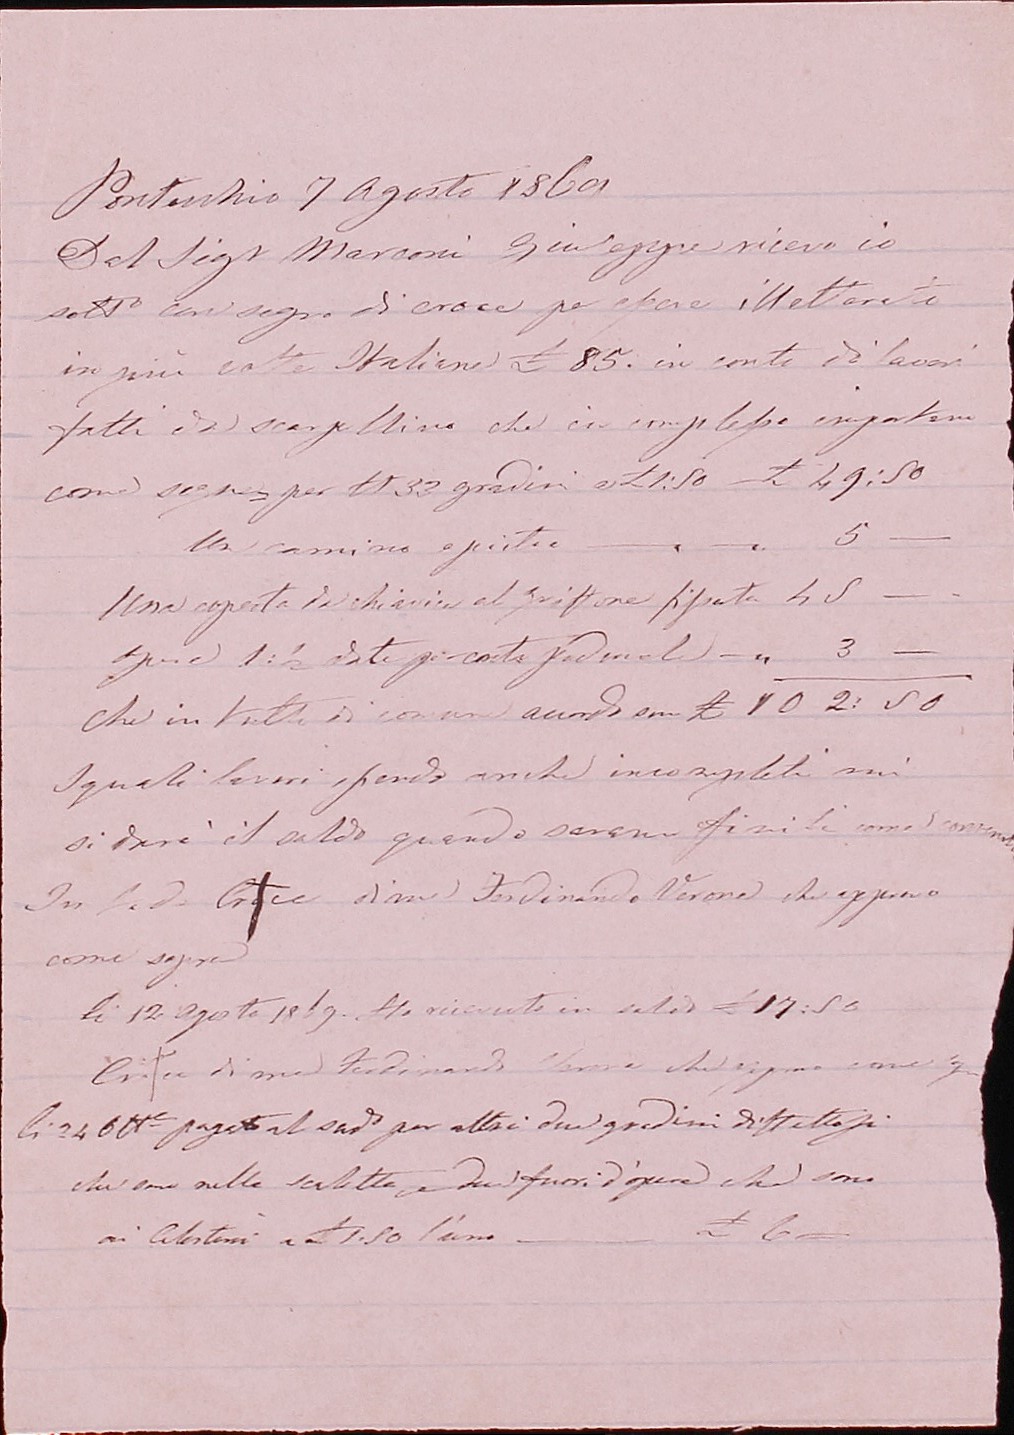 Pontecchio 7 Agosto 1869
Dal Sigr Marconi Giuseppe ricevo io
sottto con segno di croce pe essere illetterato
in più volte Italiane £ 85: in conto di lavori
fatti da scarpellino che in complesso importano
come segue per N 33 gradini a £ 1:50 — £ 49:50
Un camino a pietra — " — " 5 —
Una coperta da chiavica al Griffone fissata 45 — -
Opere 1:½ date pe conto — " 3 —
Che in tutto di comune acordo sono £ 102:50
I quali lavori essendo anche incompleti mi
si darà il saldo quando saranno finiti come
In fede Croce di me Ferdinando Verona che appruovo
come sopra
li 12 Agosto 1869. Ho ricevuto in saldo £ 17:50
Croce di me Ferdinando Verona che appruo come
li 24 Ottre pagato al sudo per altri due gradini difettosi
che sono nella scaletta e due fuori d'opera che sono
ai Celestini a £ 1.50 l'uno — £ 6 —